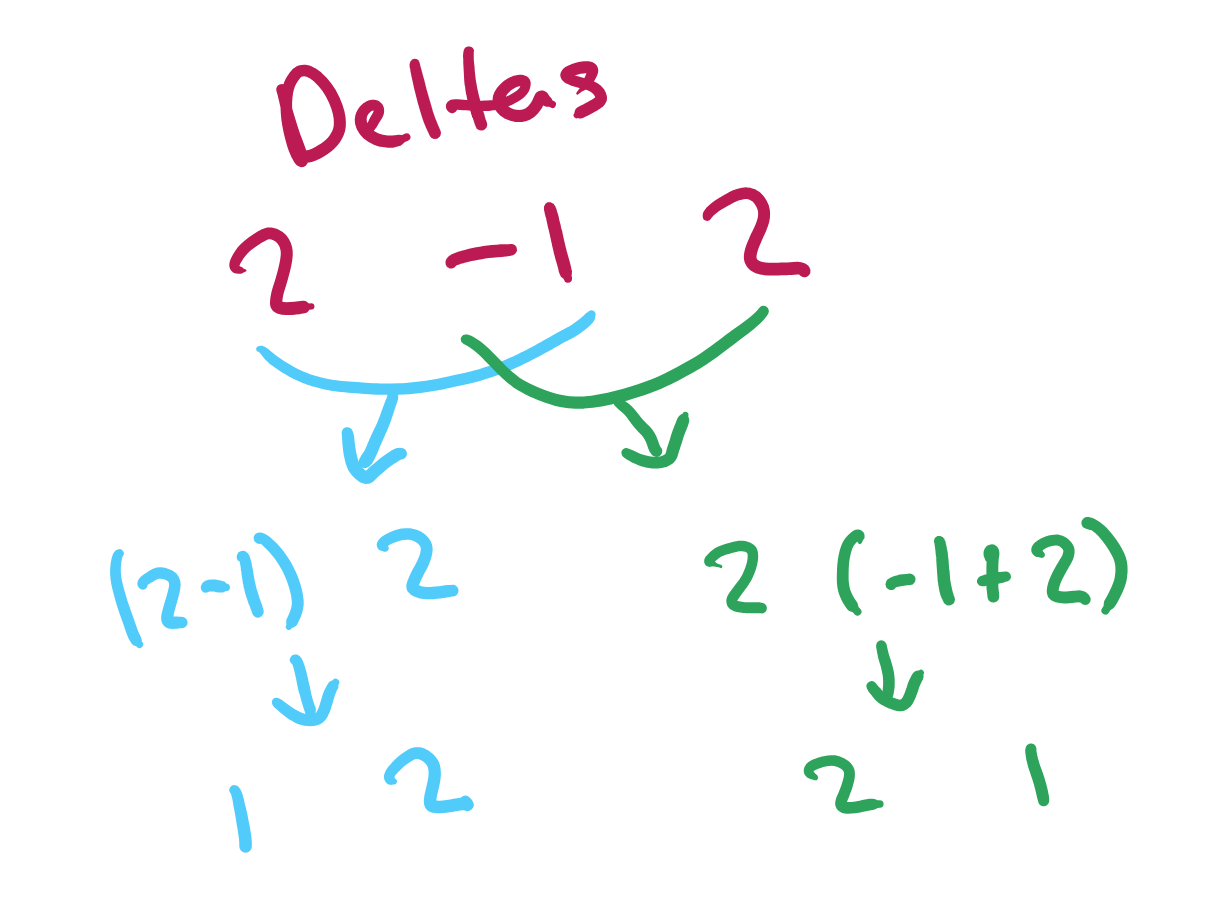 Deltas
2 -1 2
(2-1) 2
2 (-1+2)
1 2
2 1